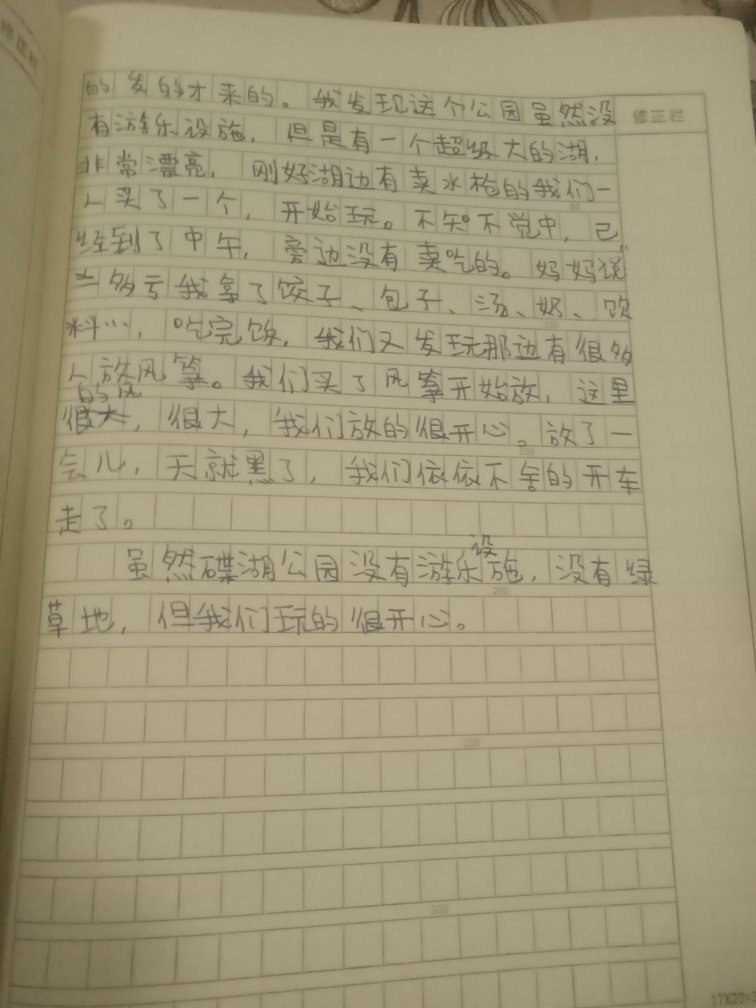 的发的才来的。我发现这个公园虽然没
修正栏
有游乐设施，但是有一个超级大的湖，
非常漂亮，刚好湖边有卖水枪的我们一
人买了一个，开始玩。不知不觉中，已
经到了中午，旁边没有卖吃的。妈妈说
多亏我拿了饺子、包子、汤、奶、饮
料…，吃完饭，我们又发玩那边有很多
人放风筝。我们买了风筝开始放，这里
的风
很大，很大，我们放的很开心。放了一
150
会儿，天就黑了，我们依依不舍的开车
走了。
设
虽然碟湖公园没有游乐施，没有绿
200
草地，但我们玩的很开心。
250
300